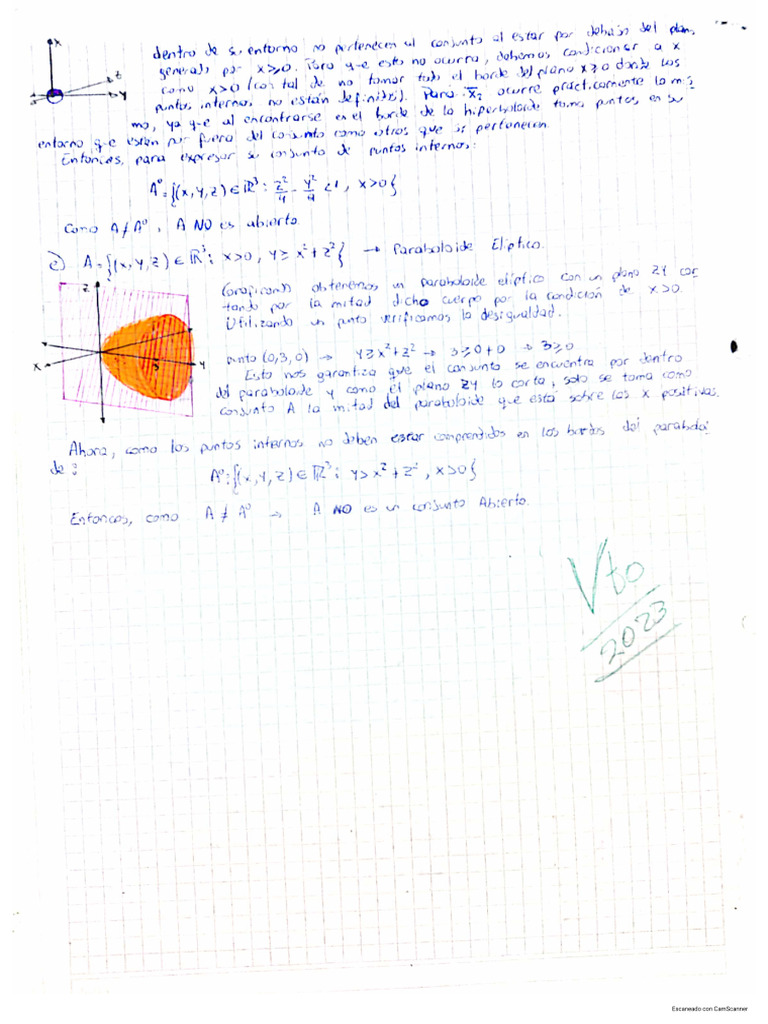 x
z
y
dentro de su entorno no pertenecen al conjunto al estar por debajo del plano
generado por x≥0. Para que esto no ocurra, debemos condicionar a x
como x>0 (con tal de no tomar todo el borde del plano x≥0 donde los
puntos internos no están definidos). Para x̄₂ ocurre prácticamente lo mis
mo, ya que al encontrarse en el borde de la hiperboloide toma puntos en su
entorno que están por fuera del conjunto como otros que si pertenecen.
Entonces, para expresar su conjunto de puntos internos:
A⁰={(x,y,z)∈ℝ³: z²/4 - y²/9 <1, x>0}
Como A≠A⁰, A NO es abierto.
A={(x,y,z)∈ℝ³: x>0, y≥x²+z²} → Paraboloide Elíptico.
Graficando obtenemos un paraboloide elíptico con un plano zy cor
tando por la mitad dicho cuerpo por la condición de x>0.
Utilizando un punto verificamos la desigualdad.
z
x
3
y
punto (0,3,0) → y≥x²+z² → 3≥0+0 → 3≥0
Esto nos garantiza que el conjunto se encuentra por dentro
del paraboloide y como el plano zy lo corta, solo se toma como
conjunto A la mitad del paraboloide que esta sobre las x positivas.
Ahora, como los puntos internos no deben estar comprendidos en los bordes del paraboloi
de:
A⁰:{(x,y,z)∈ℝ³: y>x²+z², x>0}
Entonces, como A≠A⁰ → A NO es un conjunto Abierto.
Vto
2023
Escaneado con CamScanner